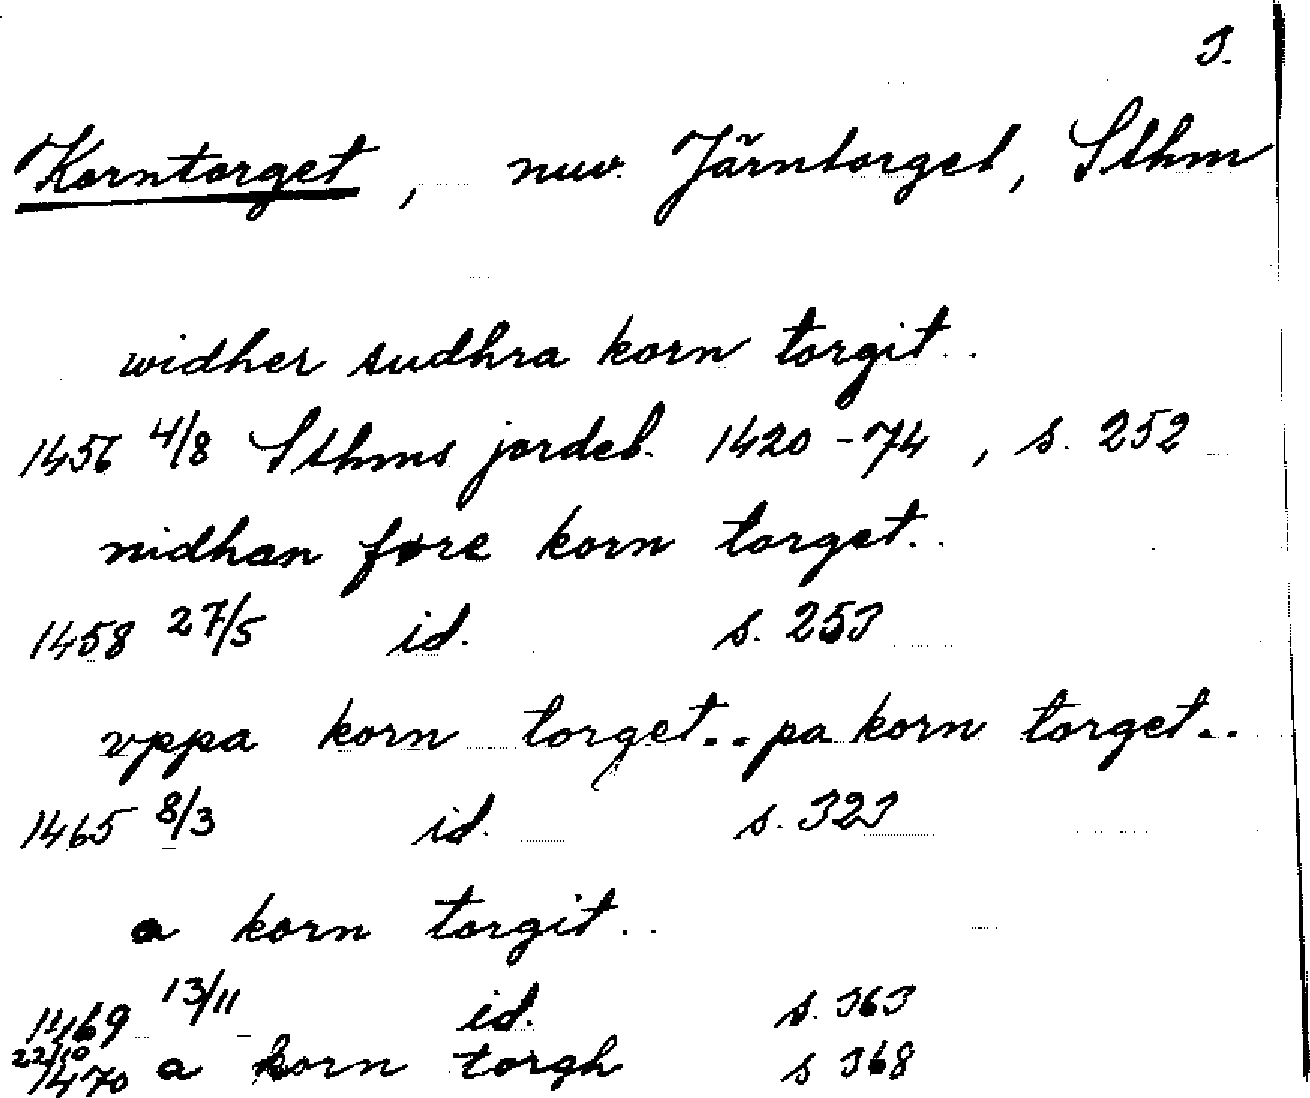 3.
Korntorget, nuv. Järntorget, Sthm
widher sudhra korn torgit..
1456 4/8 Sthms jordeb. 1420-74, s. 252
nidhan føre korn torget..
1458 27/5 id. s. 253
vppa korn torget.. pa korn torget..
1465 8/3 id. s. 323
a korn torgit..
1469 13/11 id. s. 363
22/10 1470 a korn torgh s 368